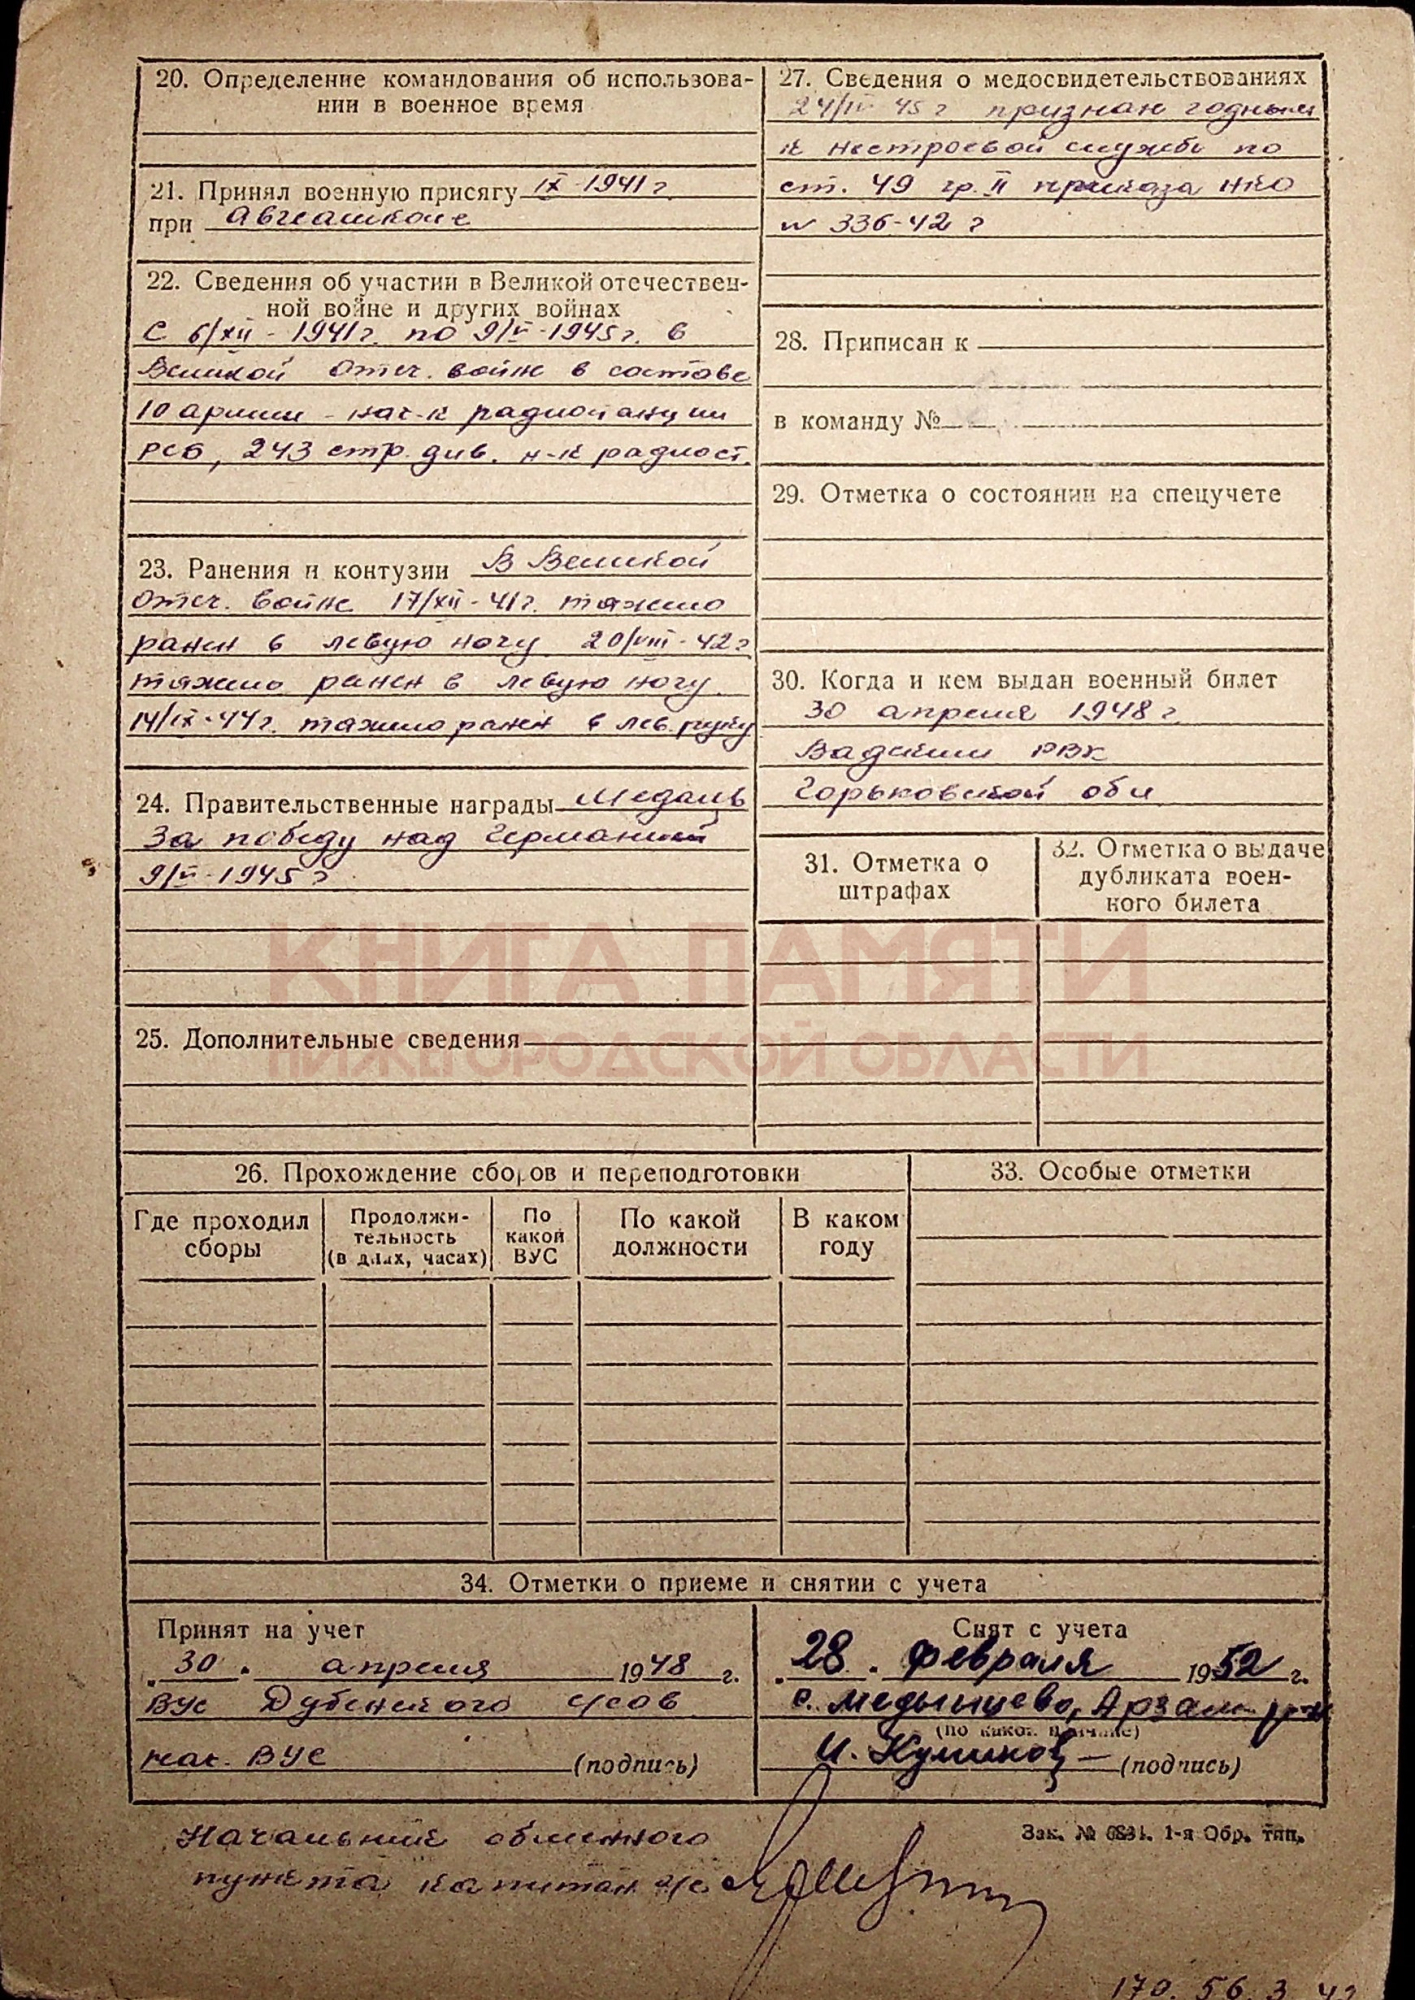 20. Определение командования об использова-
нии в военное время
21. Принял военную присягу IX-1941 г.
при Авиашколе
22. Сведения об участии в Великой отечествен-
ной войне и других войнах
С 6/XII - 1941 г. по 9/V-1945 г. в
Великой Отеч. войне в составе
10 армии - нач-к радиостанции
РСБ, 243 стр. див. н-к радиост.
23. Ранения и контузии В Великой
Отеч. войне 17/XII-41 г. тяжело
ранен в левую ногу 20/VIII-42 г
тяжело ранен в левую ногу.
14/IX-44 г. тяжело ранен в лев. руку
24. Правительственные награды Медаль
За победу над Германией
9/V-1945 г
25. Дополнительные сведения
27. Сведения о медосвидетельствованиях
24/IV 45 г признан годным
к нестроевой службе по
ст. 49 гр. II приказа НКО
N 336-42 г
28. Приписан к
в команду №
29. Отметка о состоянии на спецучете
30. Когда и кем выдан военный билет
30 апреля 1948 г.
Вадским РВК
Горьковской обл
31. Отметка о
штрафах
32. Отметка о выдаче
дубликата воен-
ного билета
КНИГА ПАМЯТИ
НИЖЕГОРОДСКОЙ ОБЛАСТИ
26. Прохождение сборов и переподготовки
Где проходил
сборы
Продолжи-
тельность
(в днях, часах)
По
какой
ВУС
По какой
должности
В каком
году
33. Особые отметки
34. Отметки о приеме и снятии с учета
Принят на учет
"30" апреля 1948 г.
ВУС Дубенского с/сов
нач. ВУС (подпись)
Снят с учета
"28" февраля 1952 г.
с. Медынцево, Арзам. р-н
(по какой причине)
И. Куликов (подпись)
Начальник обменного
пункта капитан а/с
Зак. № 1-я Обр. тип.
170. 56. 3